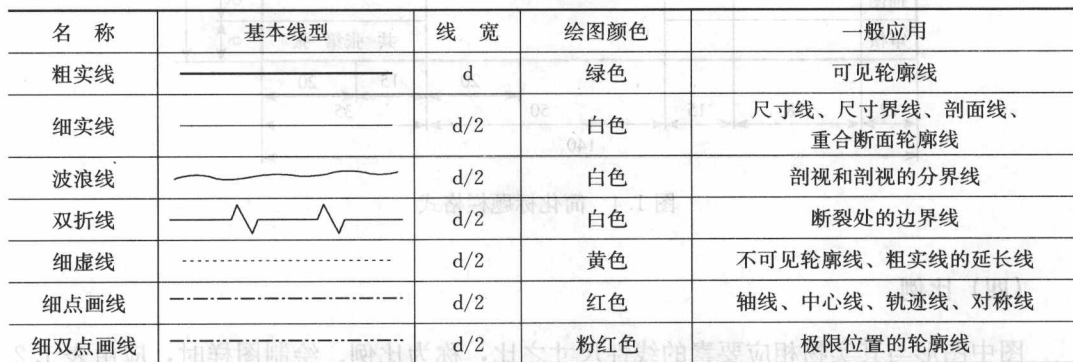 名 称 基本线型 线 宽 绘图颜色 一般应用
粗实线 d 绿色 可见轮廓线
细实线 d/2 白色 尺寸线、尺寸界线、剖面线、
重合断面轮廓线
波浪线 d/2 白色 剖视和剖视的分界线
双折线 d/2 白色 断裂处的边界线
细虚线 d/2 黄色 不可见轮廓线、粗实线的延长线
细点画线 d/2 红色 轴线、中心线、轨迹线、对称线
细双点画线 d/2 粉红色 极限位置的轮廓线